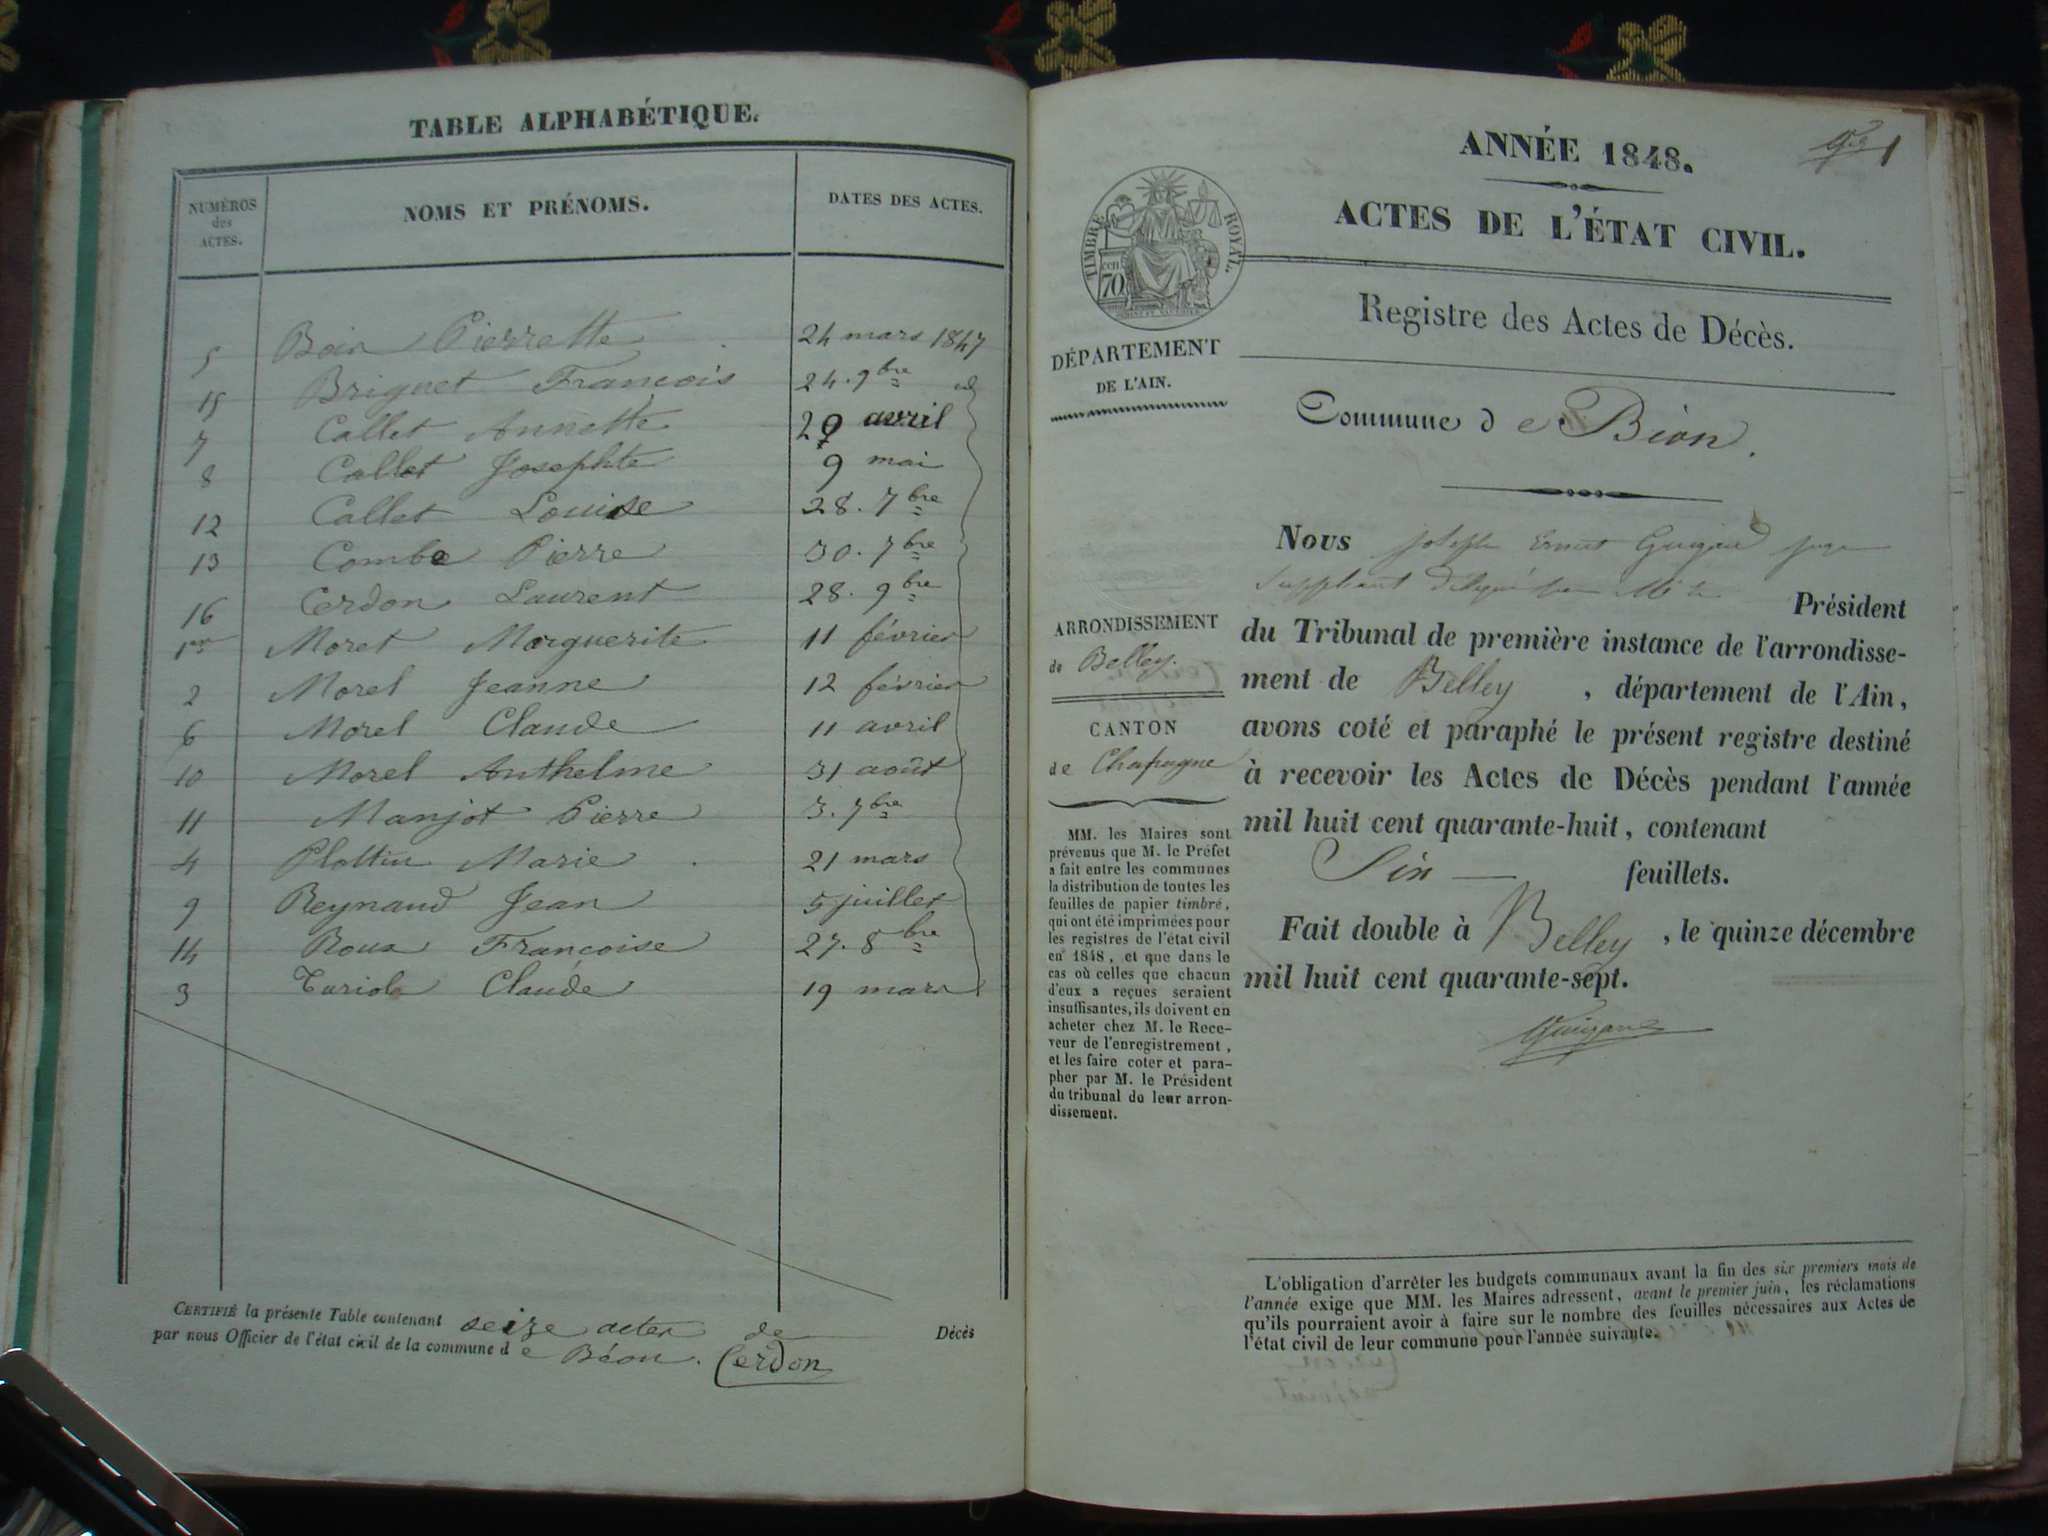 TABLE ALPHABÉTIQUE.
NUMÉROS des ACTES.
NOMS ET PRÉNOMS.
DATES DES ACTES.
5 Boin Pierrette 24 mars 1847
15 Briguet Francois 24. 9bre id
7 Callet Annette 29 avril
8 Callet Josephte 9 mai
12 Callet Louise 28. 7bre
13 Combe Pierre 30. 7bre
16 Cerdon Laurent 28. 9bre
1er Moret Marguerite 11 février
2 Morel Jeanne 12 février
6 Morel Claude 11 avril
10 Morel Anthelme 31 août
11 Manjot Pierre 3. 7bre
4 Plottin Marie 21 mars
9 Reynaud Jean 5 juillet
14 Roux Francoise 27. 8bre
3 Claude 19 mars
CERTIFIÉ la présente Table contenant seize actes de Décès
par nous Officier de l'état civil de la commune de Béon. Cerdon
1
ANNÉE 1848.
ACTES DE L'ÉTAT CIVIL.
TIMBRE ROYAL.
70
Registre des Actes de Décès.
DÉPARTEMENT
DE L'AIN.
Commune de Béon.
ARRONDISSEMENT
de Belley.
CANTON
de Chapagne
MM. les Maires sont
prévenus que M. le Préfet
a fait entre les communes
la distribution de toutes les
feuilles de papier timbré,
qui ont été imprimées pour
les registres de l'état civil
en 1848, et que dans le
cas où celles que chacun
d'eux a reçues seraient
insuffisantes, ils doivent en
acheter chez M. le Rece-
veur de l'enregistrement,
et les faire coter et para-
pher par M. le Président
du tribunal de leur arron-
dissement.
Nous Joseph Ernest juge
suppléant délégué par Mr le Président
du Tribunal de première instance de l'arrondisse-
ment de Belley, département de l'Ain,
avons coté et paraphé le présent registre destiné
à recevoir les Actes de Décès pendant l'année
mil huit cent quarante-huit, contenant
Six feuillets.
Fait double à Belley, le quinze décembre
mil huit cent quarante-sept.
L'obligation d'arrêter les budgets communaux avant la fin des six premiers mois de
l'année exige que MM. les Maires adressent, avant le premier juin, les réclamations
qu'ils pourraient avoir à faire sur le nombre des feuilles nécessaires aux Actes de
l'état civil de leur commune pour l'année suivante.